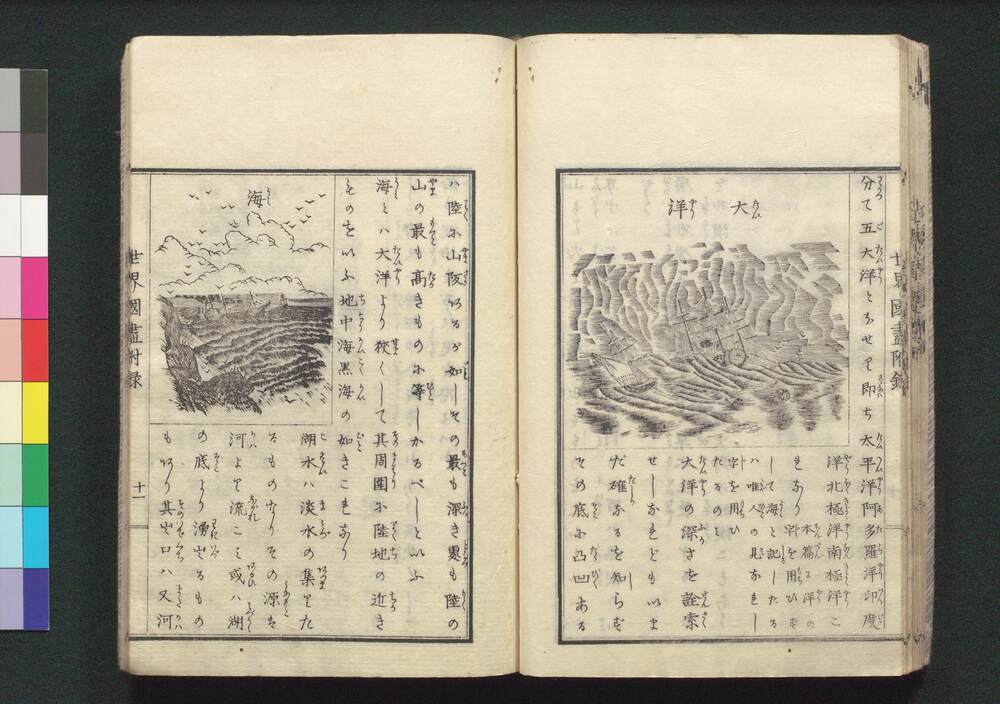 世界國盡附録
分て五大洋となせり即ち太平洋阿多羅洋印度
大洋
洋北極洋南極洋こ
れなり 本篇に洋の
字を用ひず
して海と記したる
ハ唯人の見なれし
字を用ひ
たるのミ
大洋の深さを詮索
せしなれどもいま
だ確なるを知らず
その底に凸凹ある
ハ陸に山阪あるが如しその最も深き處も陸の
山の最も高きものに等しかるべしといふ
海とハ大洋より狭くして其周圍に陸地の近き
ものをいふ地中海黒海の如きこれなり
海
湖水ハ淡水の集りた
るものなりその源を
河より流こミ或ハ湖
の底より湧出るもの
もあり其出口ハ又河
世界國盡附録
十一